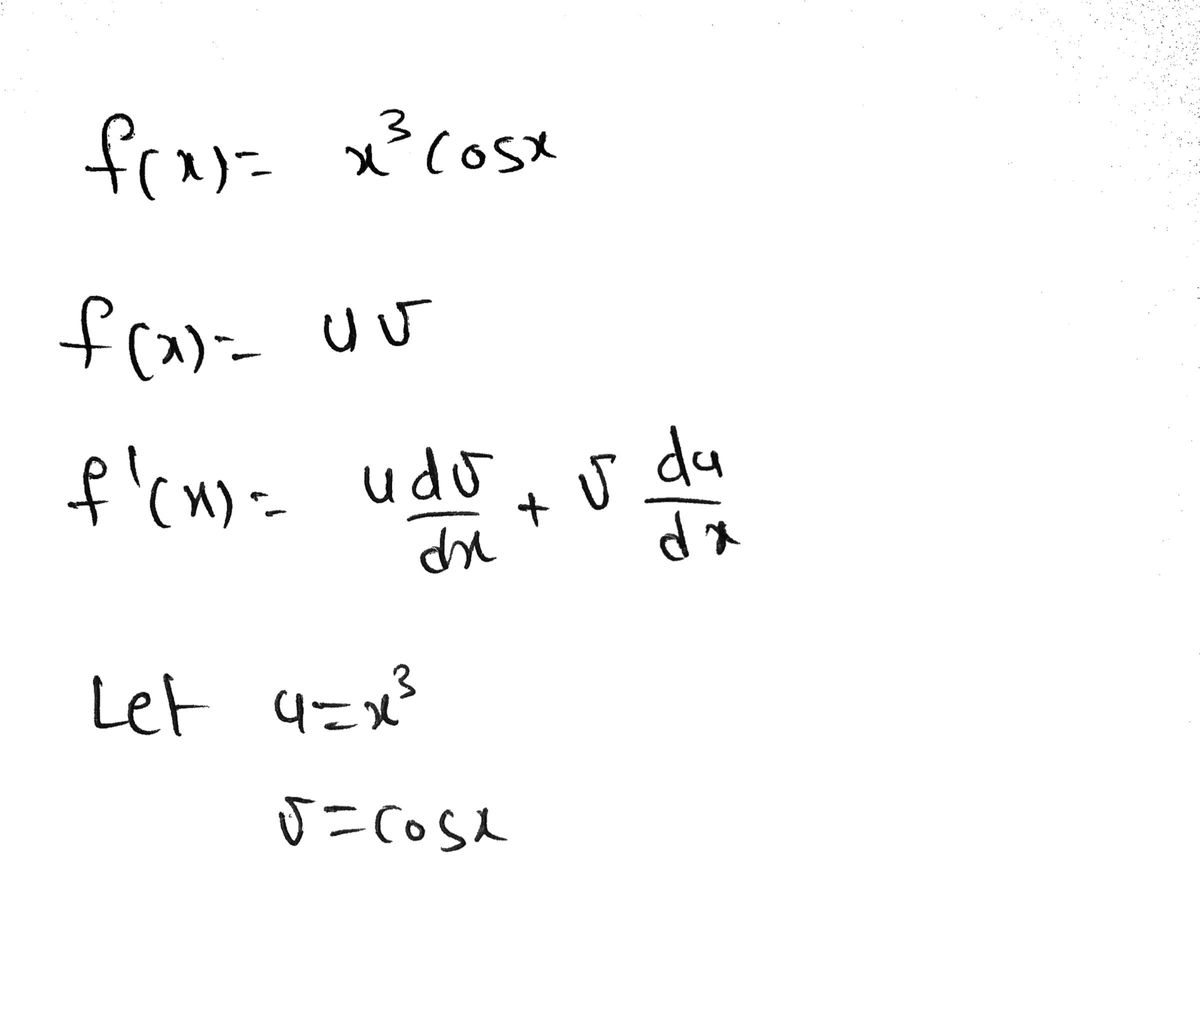 f(x)= x³cosx
f(x)= uv
f'(x)= u dv/dx + v du/dx
Let u=x³
v=cosx